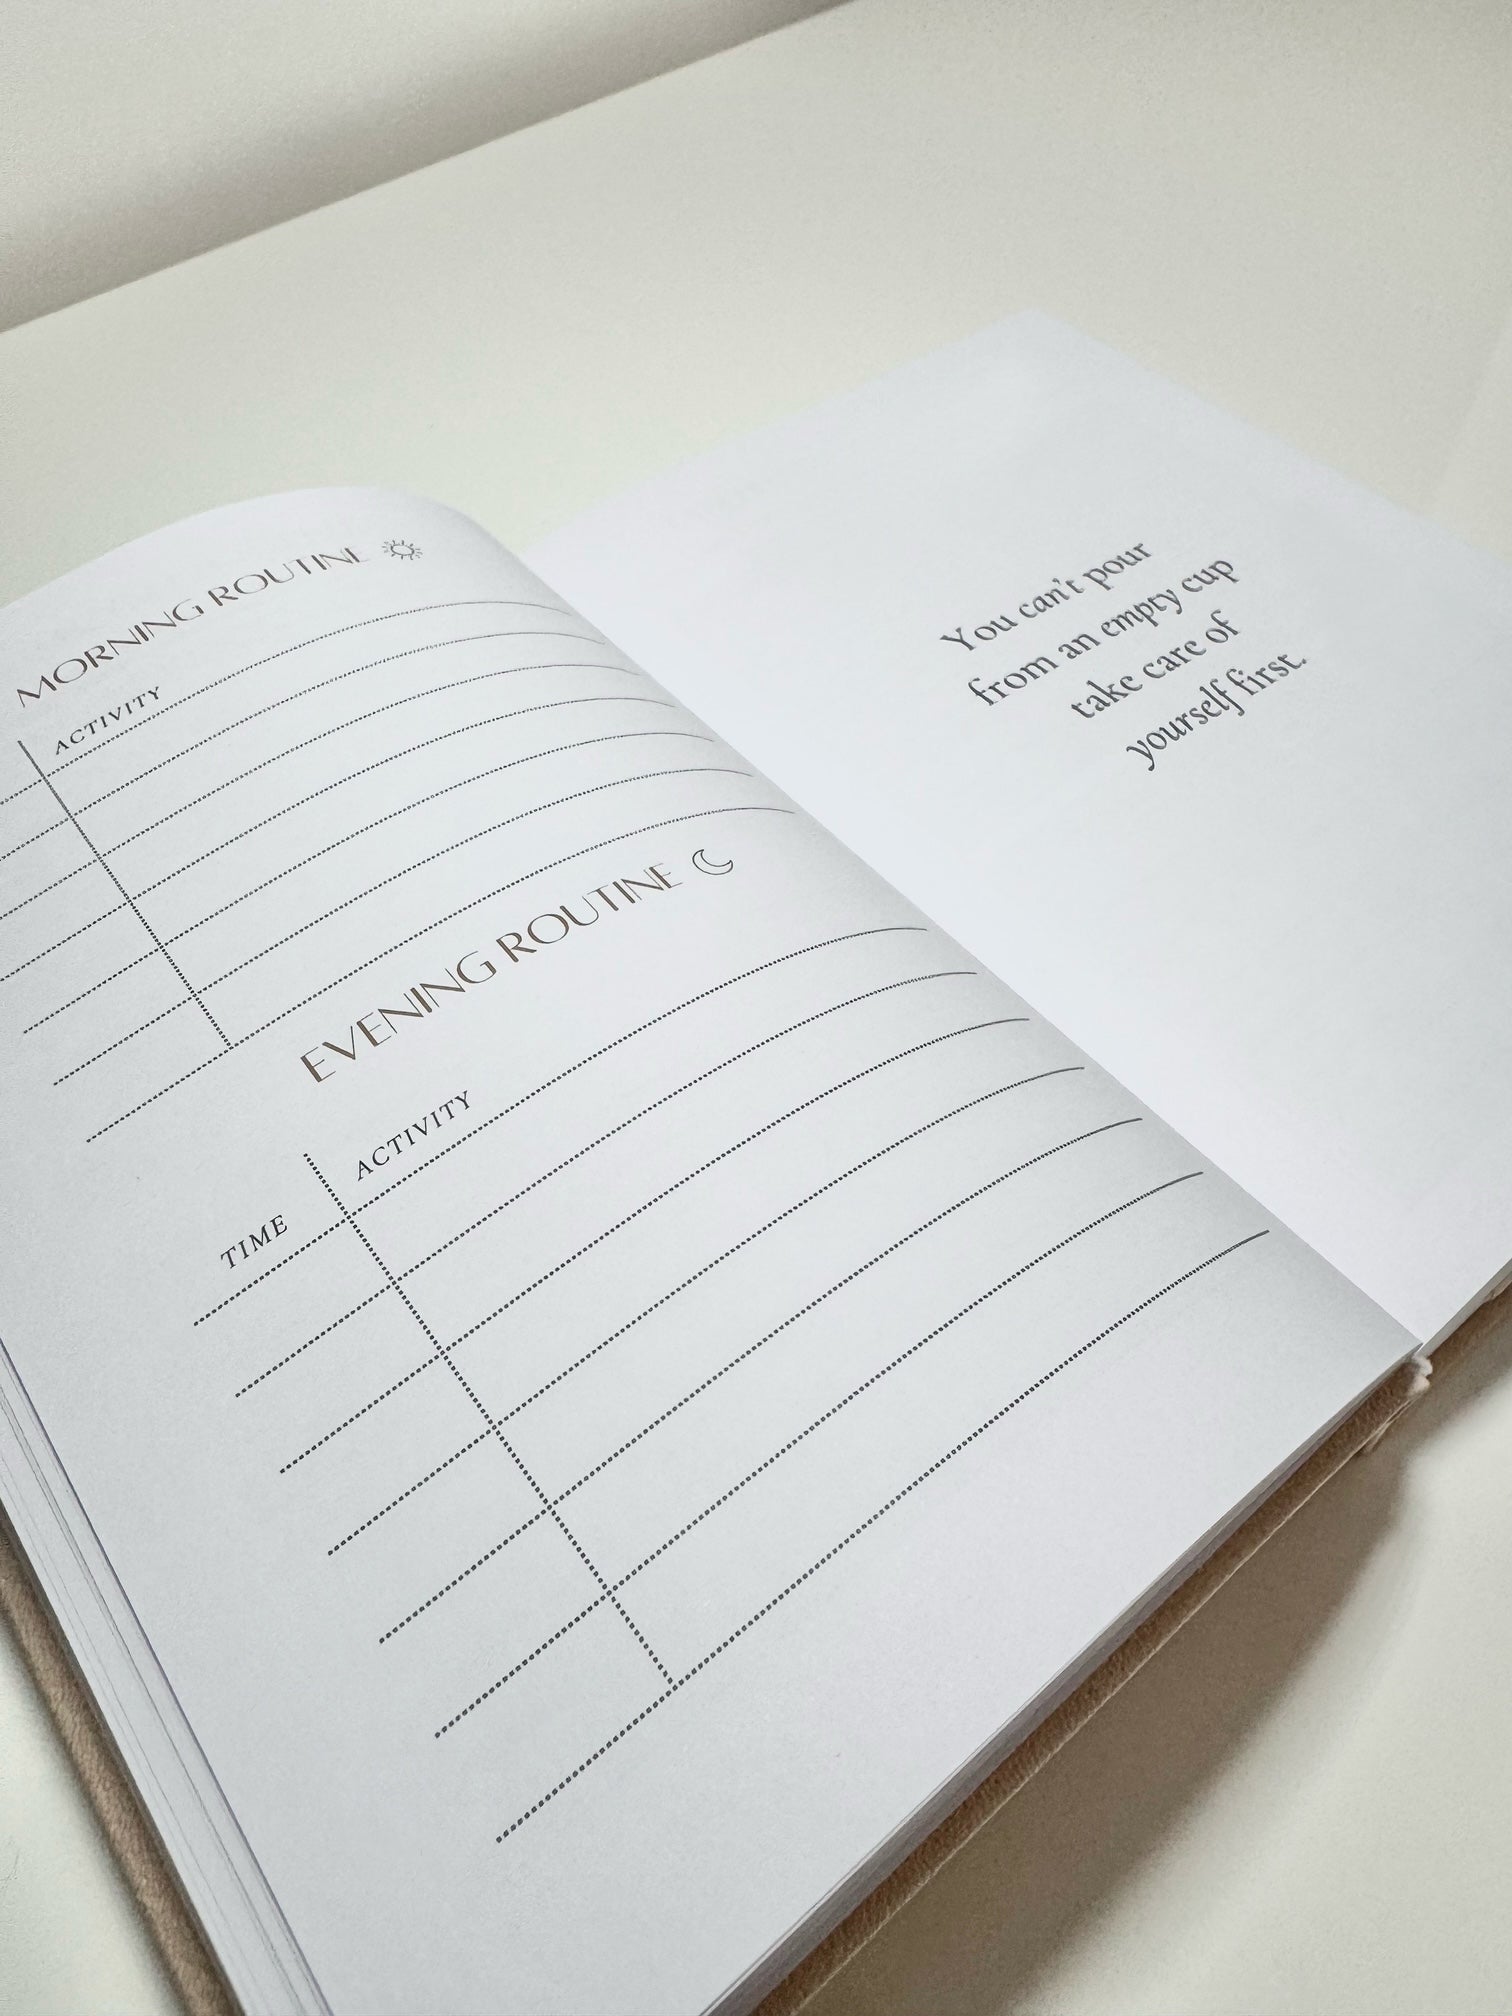 MORNING ROUTINE
ACTIVITY
EVENING ROUTINE
TIME ACTIVITY
You can't pour
from an empty cup
take care of
yourself first.